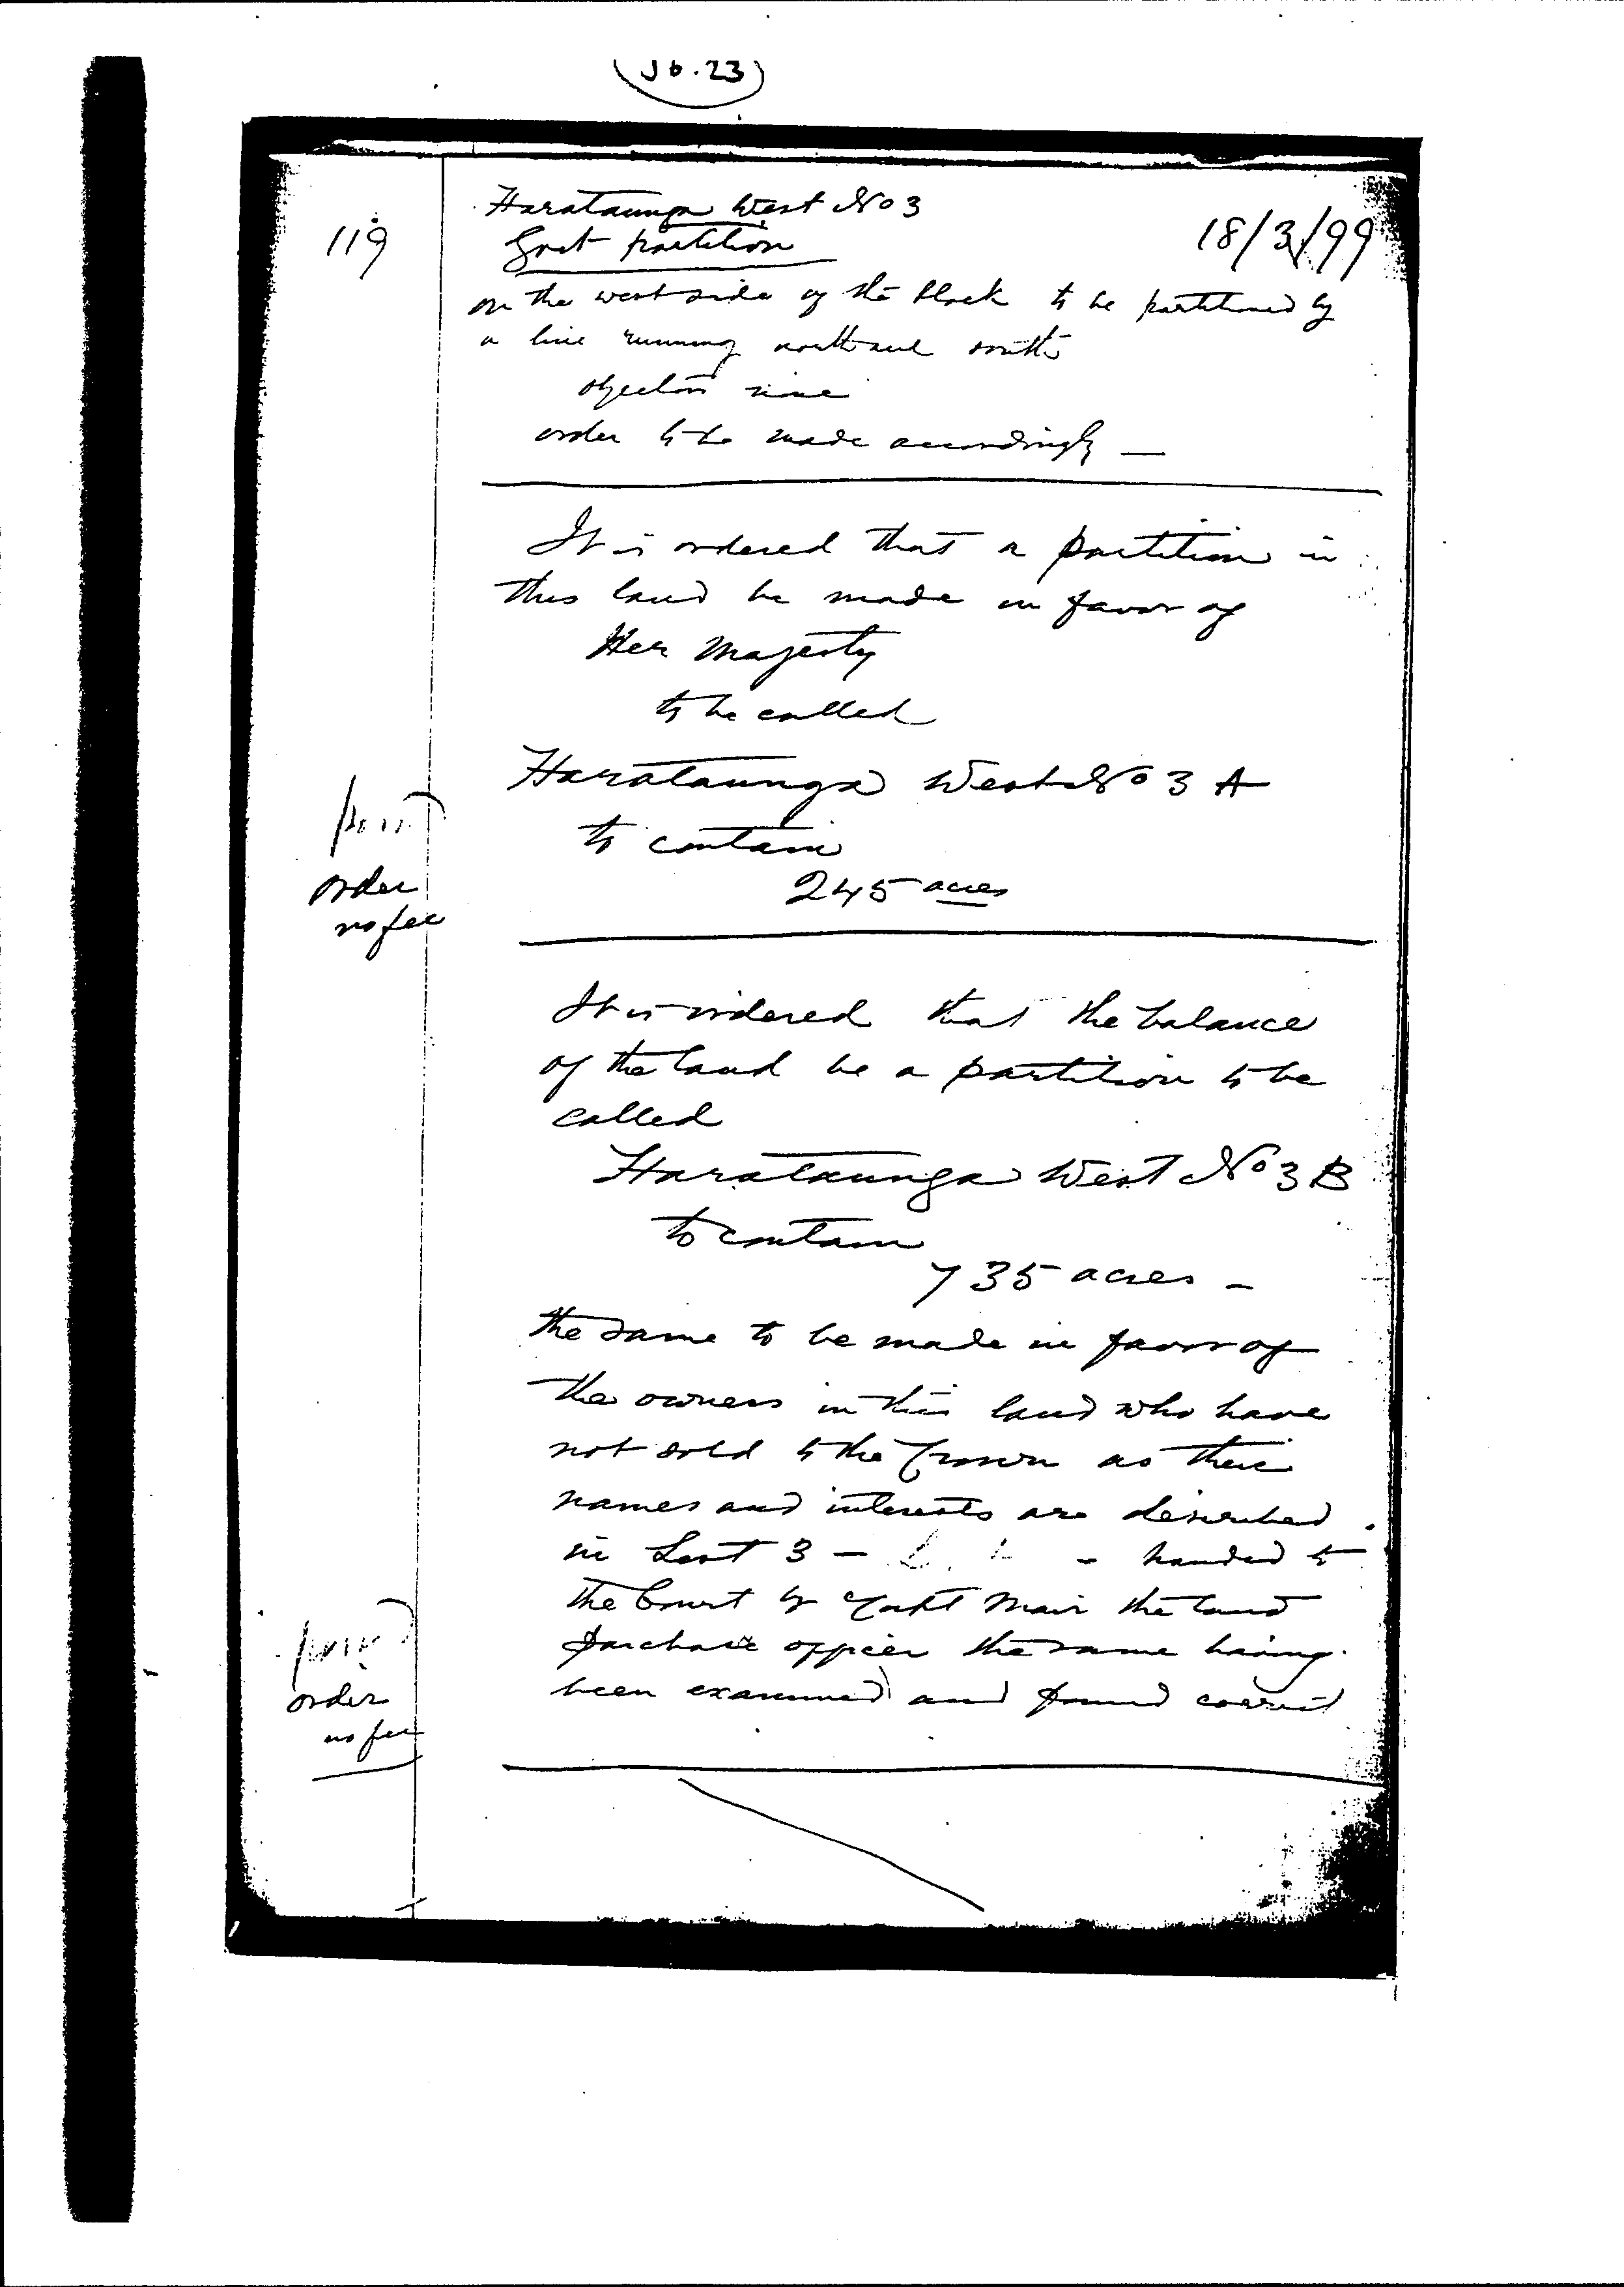 J6.23
119
Harataunga West No 3
18/3/99
Govt partition
on the west side of the block to be partitioned by
a line running north and south
objectors none
order to be made accordingly —
It is ordered that a partition in
this land be made in favor of
Her Majesty
to be called
Harataunga West No 3 A
to contain
245 acres
order
no fee
It is ordered that the balance
of the land be a partition to be
called
Harataunga West No 3 B
to contain
735 acres —
the same to be made in favor of
the owners in this land who have
not sold to the Crown as their
names and interests are described
in List 3 — - handed to
the Court by Capt Mair the land
purchase officer the same having
been examined and found correct
order
no fee